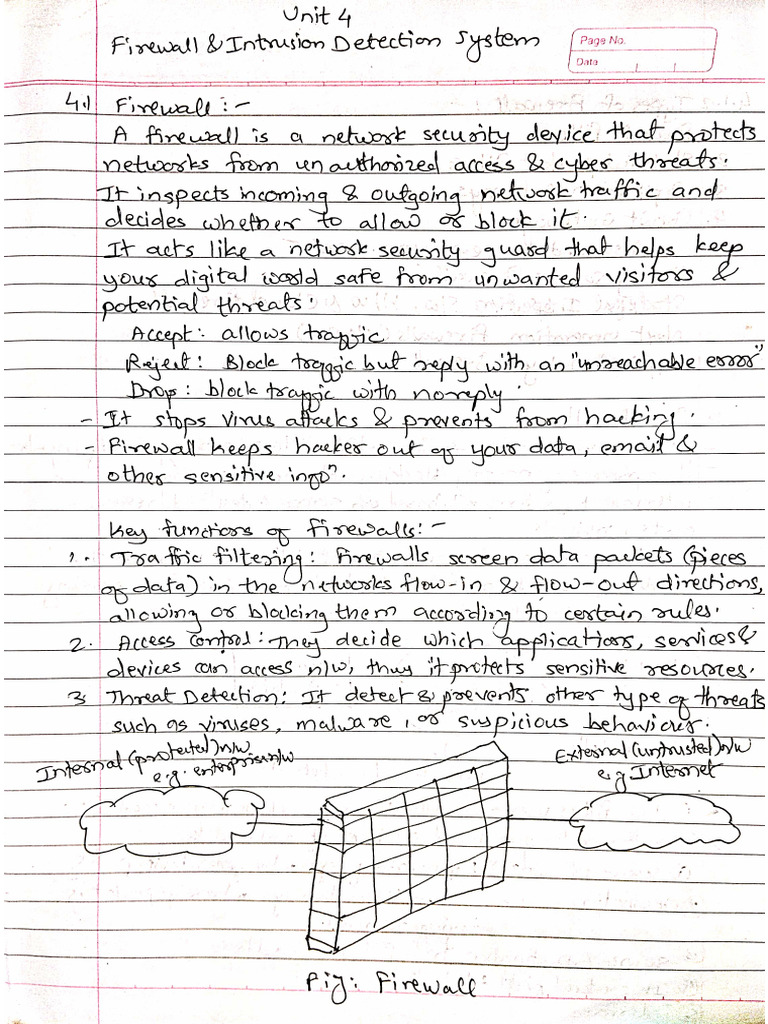 Unit 4
Firewall & Intrusion Detection System
Page No.
Date
4.1 Firewall :-
A firewall is a network security device that protects
networks from unauthorized access & cyber threats.
It inspects incoming & outgoing network traffic and
decides whether to allow or block it.
It acts like a network security guard that helps keep
your digital world safe from unwanted visitors &
potential threats.
Accept: allows traffic
Reject: Block traffic but reply with an "unreachable error"
Drop: block traffic with no reply
- It stops virus attacks & prevents from hacking.
- Firewall keeps hacker out of your data, email &
other sensitive infoⁿ.
Key functions of firewalls:-
1. Traffic filtering: Firewalls screen data packets (pieces
of data) in the networks flow-in & flow-out directions,
allowing or blocking them according to certain rules.
2. Access Control: They decide which applications, services &
devices can access n/w, thus it protects sensitive resources.
3 Threat Detection: It detect & prevents other type of threats
such as viruses, malware, or suspicious behaviour.
Internal (protected) n/w
e.g. enterprise n/w
External (untrusted) n/w
e.g Internet
Fig: Firewall